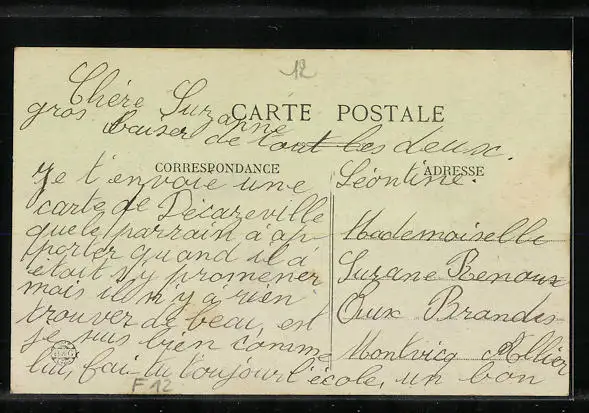 12
Chère Suzanne
CARTE POSTALE
gros baiser de tout les deux.
CORRESPONDANCE
ADRESSE
Léontine.
Je t'envoie une
carte de Décazeville
que le parrain à ap-
porter quand il à
était s'y promener
mais il n'y à rien
trouver de beau, est
je suis bien comme
lui, fait tu toujour l'école, un bon
Mademoiselle
Suzane Renoux
Aux Brandes
Montvicq Allier
F 12